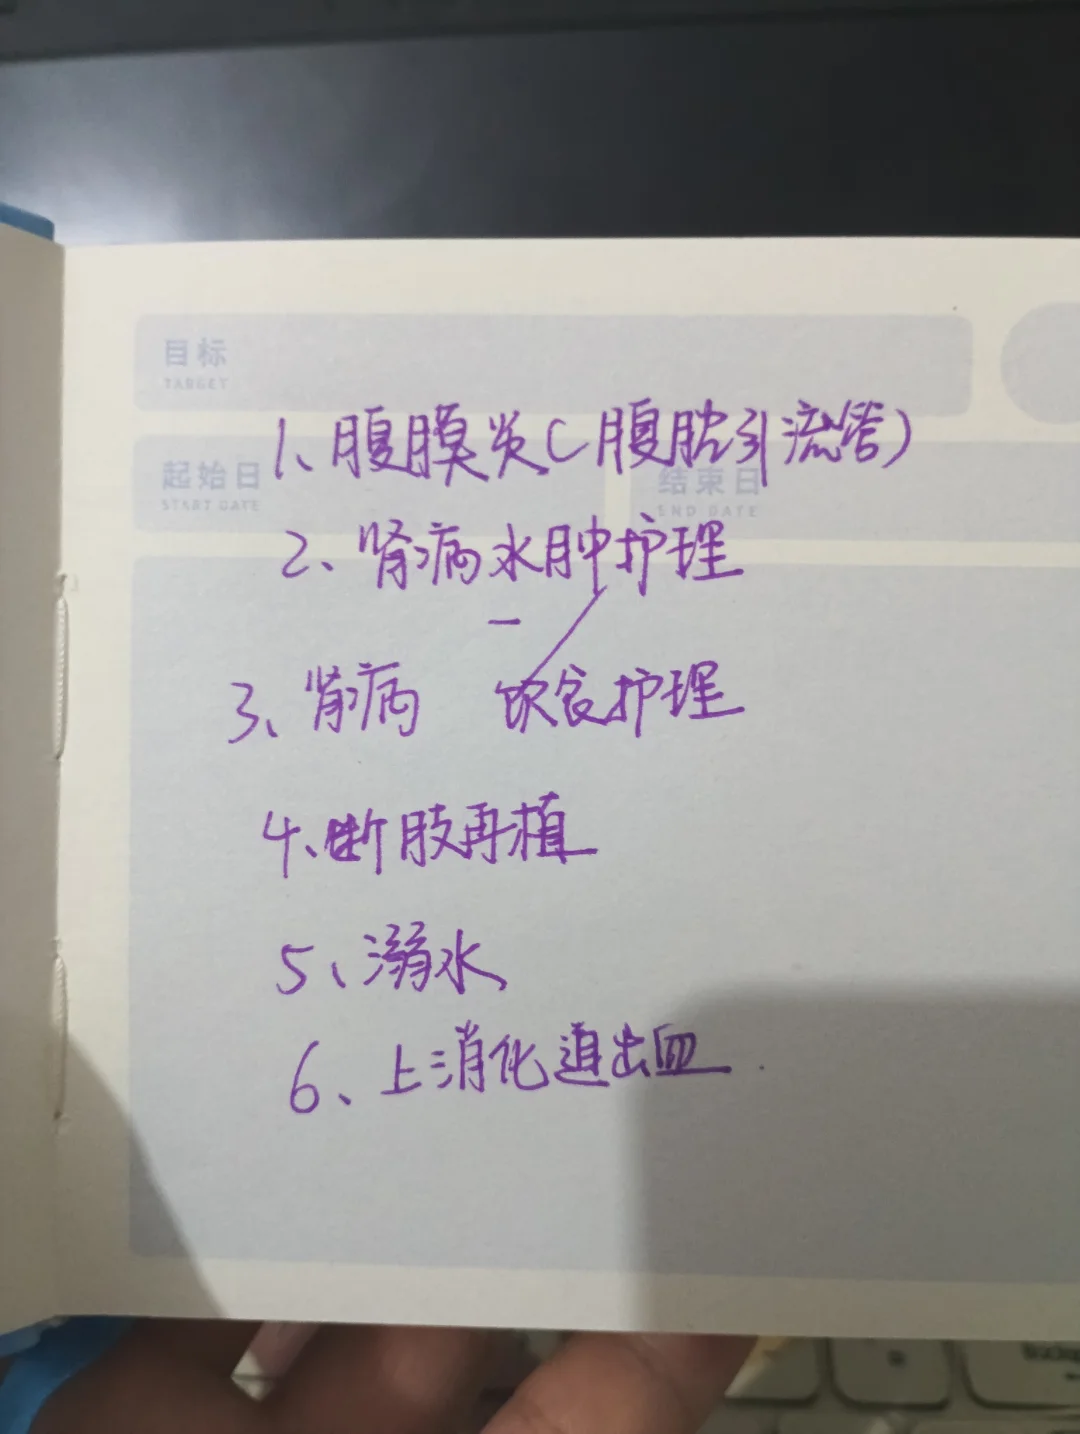 目标
TARGET
1、腹膜炎(腹腔引流管)
起始日
START DATE
结束日
END DATE
2、肾病水肿护理
3、肾病 饮食护理
4、断肢再植
5、溺水
6、上消化道出血.